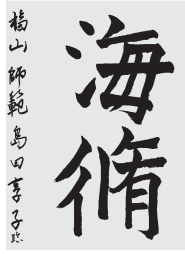 海脩
福山 師範 島田享子臨